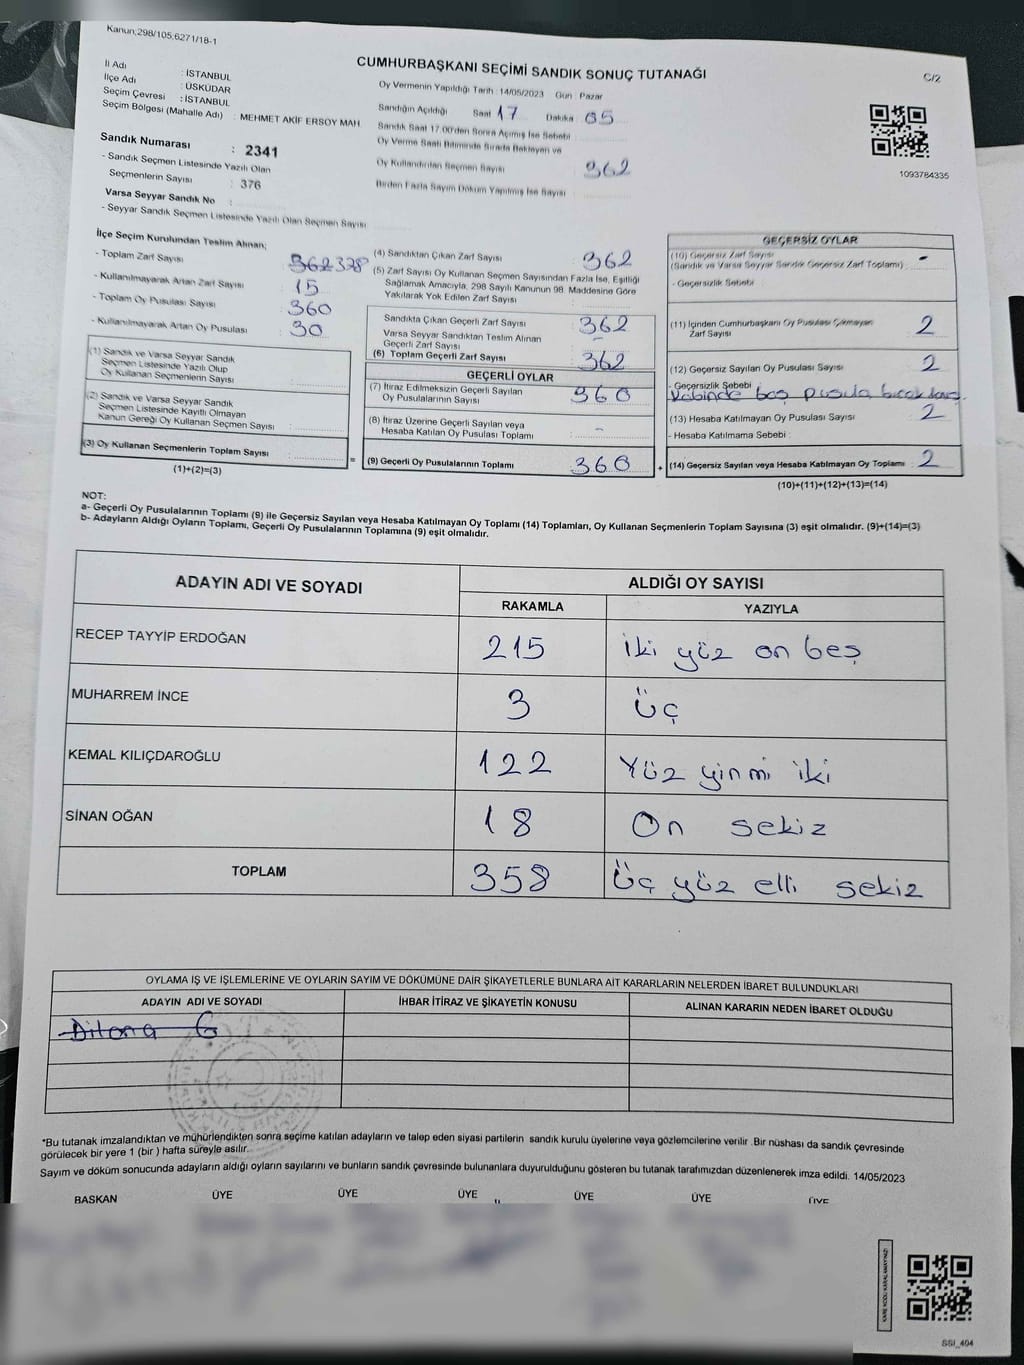 Kanun;298/105,6271/18-1
CUMHURBAŞKANI SEÇİMİ SANDIK SONUÇ TUTANAĞI
C/2
İl Adı : İSTANBUL
İlçe Adı : ÜSKÜDAR
Seçim Çevresi : İSTANBUL
Seçim Bölgesi (Mahalle Adı) : MEHMET AKİF ERSOY MAH.
Sandık Numarası : 2341
- Sandık Seçmen Listesinde Yazılı Olan
Seçmenlerin Sayısı : 376
Varsa Seyyar Sandık No :
- Seyyar Sandık Seçmen Listesinde Yazılı Olan Seçmen Sayısı
Oy Vermenin Yapıldığı Tarih : 14/05/2023 Gün : Pazar
Sandığın Açıldığı Saat 17 Dakika 05
Sandık Saat 17.00'den Sonra Açılmış İse Sebebi
Oy Verme Saati Bitiminde Sırada Bekleyen ve
Oy Kullandırılan Seçmen Sayısı 362
Birden Fazla Sayım Döküm Yapılmış İse Sayısı
1093784335
İlçe Seçim Kurulundan Teslim Alınan;
- Toplam Zarf Sayısı : 362 378
- Kullanılmayarak Artan Zarf Sayısı : 15
- Toplam Oy Pusulası Sayısı : 360
- Kullanılmayarak Artan Oy Pusulası : 30
(1) Sandık ve Varsa Seyyar Sandık
Seçmen Listesinde Yazılı Olup
Oy Kullanan Seçmenlerin Sayısı :
(2) Sandık ve Varsa Seyyar Sandık
Seçmen Listesinde Kayıtlı Olmayan
Kanun Gereği Oy Kullanan Seçmen Sayısı :
(3) Oy Kullanan Seçmenlerin Toplam Sayısı :
(1)+(2)=(3)
(4) Sandıktan Çıkan Zarf Sayısı : 362
(5) Zarf Sayısı Oy Kullanan Seçmen Sayısından Fazla İse, Eşitliği
Sağlamak Amacıyla, 298 Sayılı Kanunun 98. Maddesine Göre
Yakılarak Yok Edilen Zarf Sayısı :
Sandıkta Çıkan Geçerli Zarf Sayısı : 362
Varsa Seyyar Sandıktan Teslim Alınan
Geçerli Zarf Sayısı : -
(6) Toplam Geçerli Zarf Sayısı : 362
GEÇERLİ OYLAR
(7) İtiraz Edilmeksizin Geçerli Sayılan
Oy Pusulalarının Sayısı : 360
(8) İtiraz Üzerine Geçerli Sayılan veya
Hesaba Katılan Oy Pusulası Toplamı : -
=
(9) Geçerli Oy Pusulalarının Toplamı : 360
+
GEÇERSİZ OYLAR
(10) Geçersiz Zarf Sayısı
(Sandık ve Varsa Seyyar Sandık Geçersiz Zarf Toplamı) : -
- Geçersizlik Sebebi :
(11) İçinden Cumhurbaşkanı Oy Pusulası Çıkmayan
Zarf Sayısı : 2
(12) Geçersiz Sayılan Oy Pusulası Sayısı : 2
- Geçersizlik Sebebi :
Kabinde boş pusula bırakılmış.
(13) Hesaba Katılmayan Oy Pusulası Sayısı : 2
- Hesaba Katılmama Sebebi :
(14) Geçersiz Sayılan veya Hesaba Katılmayan Oy Toplamı : 2
(10)+(11)+(12)+(13)=(14)
NOT:
a- Geçerli Oy Pusulalarının Toplamı (9) ile Geçersiz Sayılan veya Hesaba Katılmayan Oy Toplamı (14) Toplamları, Oy Kullanan Seçmenlerin Toplam Sayısına (3) eşit olmalıdır. (9)+(14)=(3)
b- Adayların Aldığı Oyların Toplamı, Geçerli Oy Pusulalarının Toplamına (9) eşit olmalıdır.
ADAYIN ADI VE SOYADI
ALDIĞI OY SAYISI
RAKAMLA YAZIYLA
RECEP TAYYİP ERDOĞAN 215 iki yüz on beş
MUHARREM İNCE 3 üç
KEMAL KILIÇDAROĞLU 122 Yüz yirmi iki
SİNAN OĞAN 18 On sekiz
TOPLAM 358 Üç yüz elli sekiz
OYLAMA İŞ VE İŞLEMLERİNE VE OYLARIN SAYIM VE DÖKÜMÜNE DAİR ŞİKAYETLERLE BUNLARA AİT KARARLARIN NELERDEN İBARET BULUNDUKLARI
ADAYIN ADI VE SOYADI İHBAR İTİRAZ VE ŞİKAYETİN KONUSU ALINAN KARARIN NEDEN İBARET OLDUĞU
*Bu tutanak imzalandıktan ve mühürlendikten sonra seçime katılan adayların ve talep eden siyasi partilerin sandık kurulu üyelerine veya gözlemcilerine verilir .Bir nüshası da sandık çevresinde
görülecek bir yere 1 (bir ) hafta süreyle asılır.
Sayım ve döküm sonucunda adayların aldığı oyların sayılarını ve bunların sandık çevresinde bulunanlara duyurulduğunu gösteren bu tutanak tarafımızdan düzenlenerek imza edildi. 14/05/2023
BAŞKAN ÜYE ÜYE ÜYE ÜYE ÜYE ÜYE
SSI_404